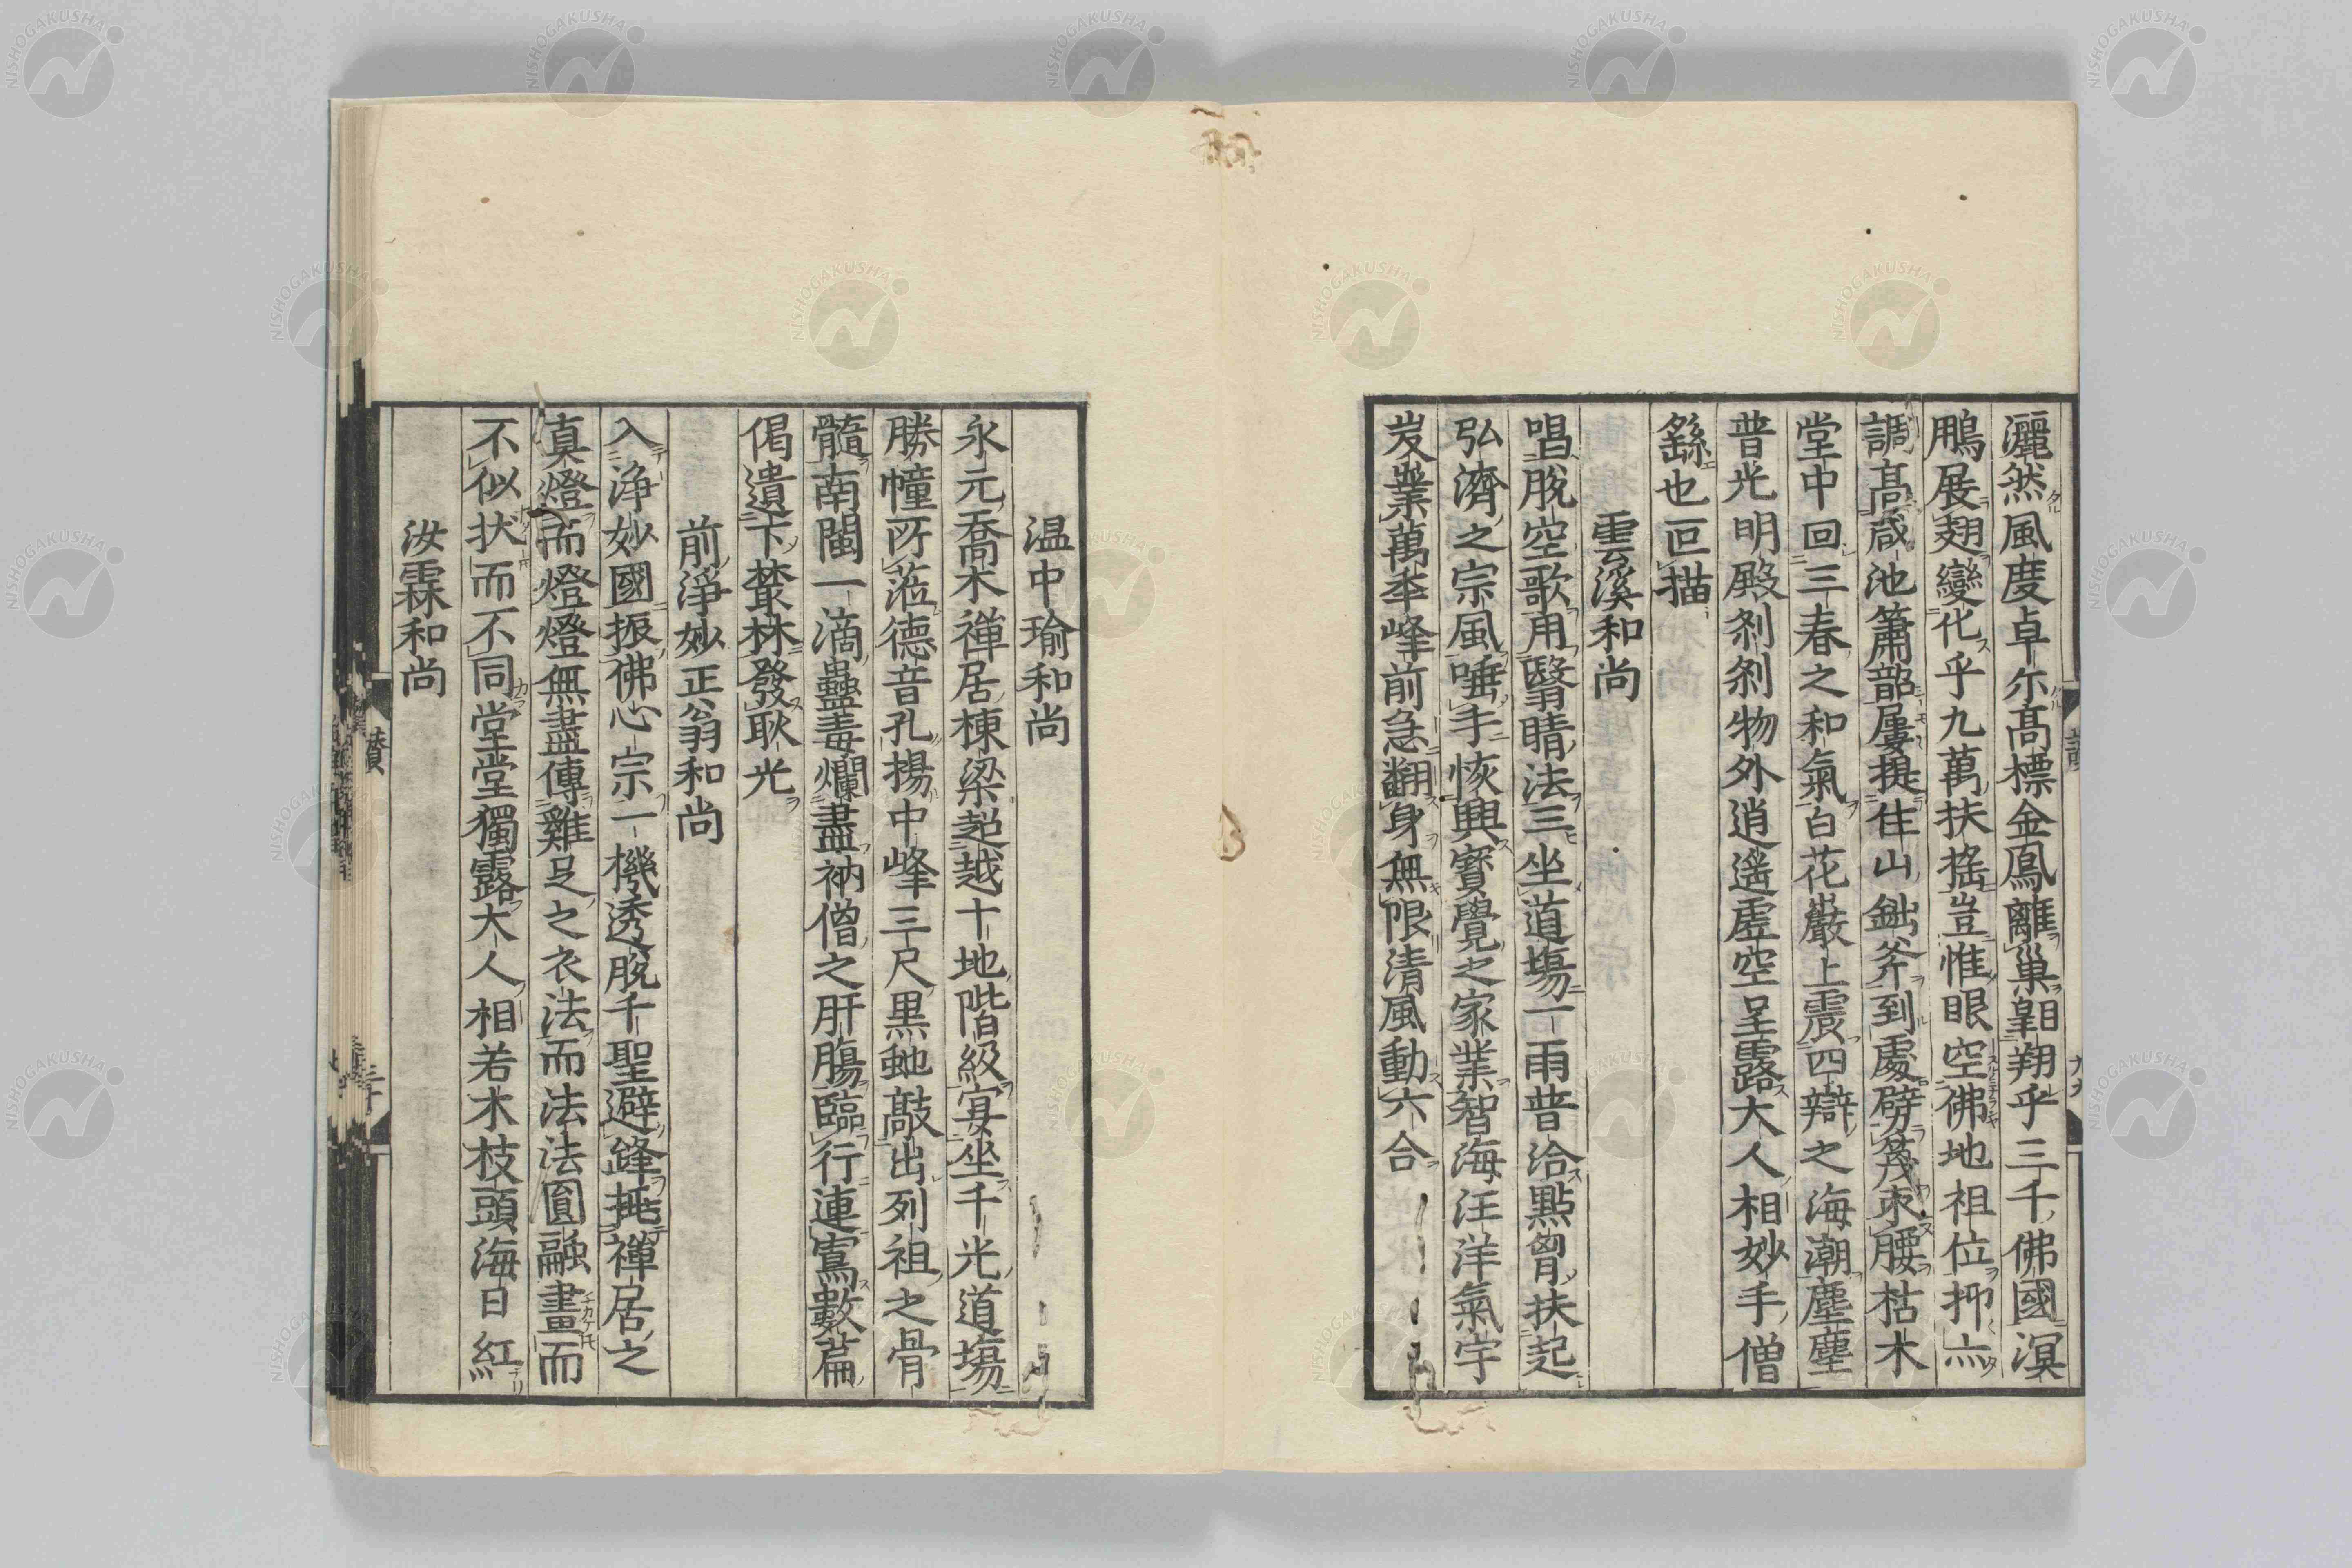 灑然風度卓尓髙標金鳳離巢翺翔乎三千佛國溟
鵬展翅變化乎九萬扶搖豈惟眼空佛地祖位抑亦
調髙咸池簫韶屢提住山鈯斧到處劈篾束腰枯木
堂中回三春之和氣白花巖上震四辯之海潮塵塵
普光明殿刹刹物外逍遥虚空呈露大人相妙手僧
繇也叵描
雲溪和尚
唱脫空歌用瞖睛法三坐道塲一雨普洽點胷扶起
弘濟之宗風唾手恢興寳覺之家業智海汪洋氣宇
岌嶪萬年峰前急翻身無限清風動六合
温中瑜和尚
永元喬木禪居棟梁超越十地階級宴坐千光道塲
勝幢所莅德音孔揚中峰三尺黒虵敲出列祖之骨
髓南閩一滴蠱毒爛盡衲僧之肝膓臨行連寫數篇
偈遺下䕺林發耿光
前淨妙正翁和尚
入淨妙國振佛心宗一機透脫千聖避鋒挑禪居之
真燈而燈燈無盡傳雞足之衣法而法法圓融畫而
不似狀而不同堂堂獨露大人相若木枝頭海日紅
汝霖和尚
NISHOGAKUSHA